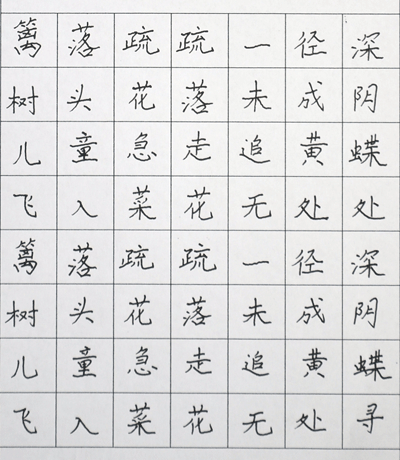 篱落疏疏一径深
树头花落未成阴
儿童急走追黄蝶
飞入菜花无处处
篱落疏疏一径深
树头花落未成阴
儿童急走追黄蝶
飞入菜花无处寻